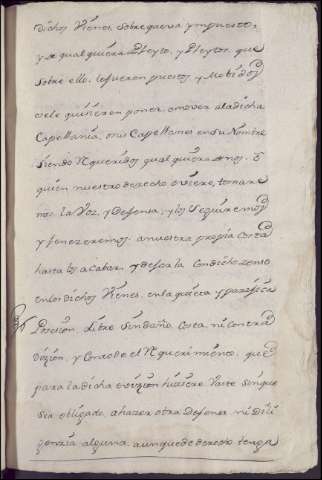 dichos Vienes sobre que va ympuesto,
y a qualquiera Pleyto, y Pleytos, que
sobre ello, le fueren puestos, y Mobidos
o se le quisieren poner, o mover a la dicha
Capellania, o sus Capellanes en su Nombre
siendo Rqueridos qualquiera dellos. O
quien nuestro derecho oviere, tomare
mos la Voz, y Defensa, y los Seguiremos
y feneceremos. a nuestra propia Costa
hasta los acabar, y dexarla Con dicho zenso
en los dichos Vienes, en la quieta y pazifica
Posesion, Libre sin daño, Costa, ni Contra
dizion, y Conado el Rquerimiento, que
para la dicha evizion hiziere Parte sin que
sea obligado, a hazer otra Defensa, ni Dili
genzia alguna, aunque de derecho tenga